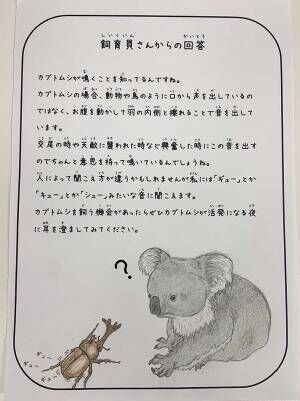 飼育員さんからの回答
カブトムシが鳴くことを知ってるんですね。
カブトムシの場合、動物や鳥のように口から声を出しているの
ではなく、お腹を動かして羽の内側と擦れることで音を出して
います。
交尾の時や天敵に襲われた時など興奮した時にこの音を出す
のでちゃんと意思を持って鳴いているんでしょうね。
人によって聞こえ方が違うかもしれませんが私には「ギュー」とか
「キュー」とか「シュー」みたいな音に聞こえます。
カブトムシを飼う機会があったらぜひカブトムシが活発になる夜
に耳を澄ましてみてください。
?
ギュー
ギュー